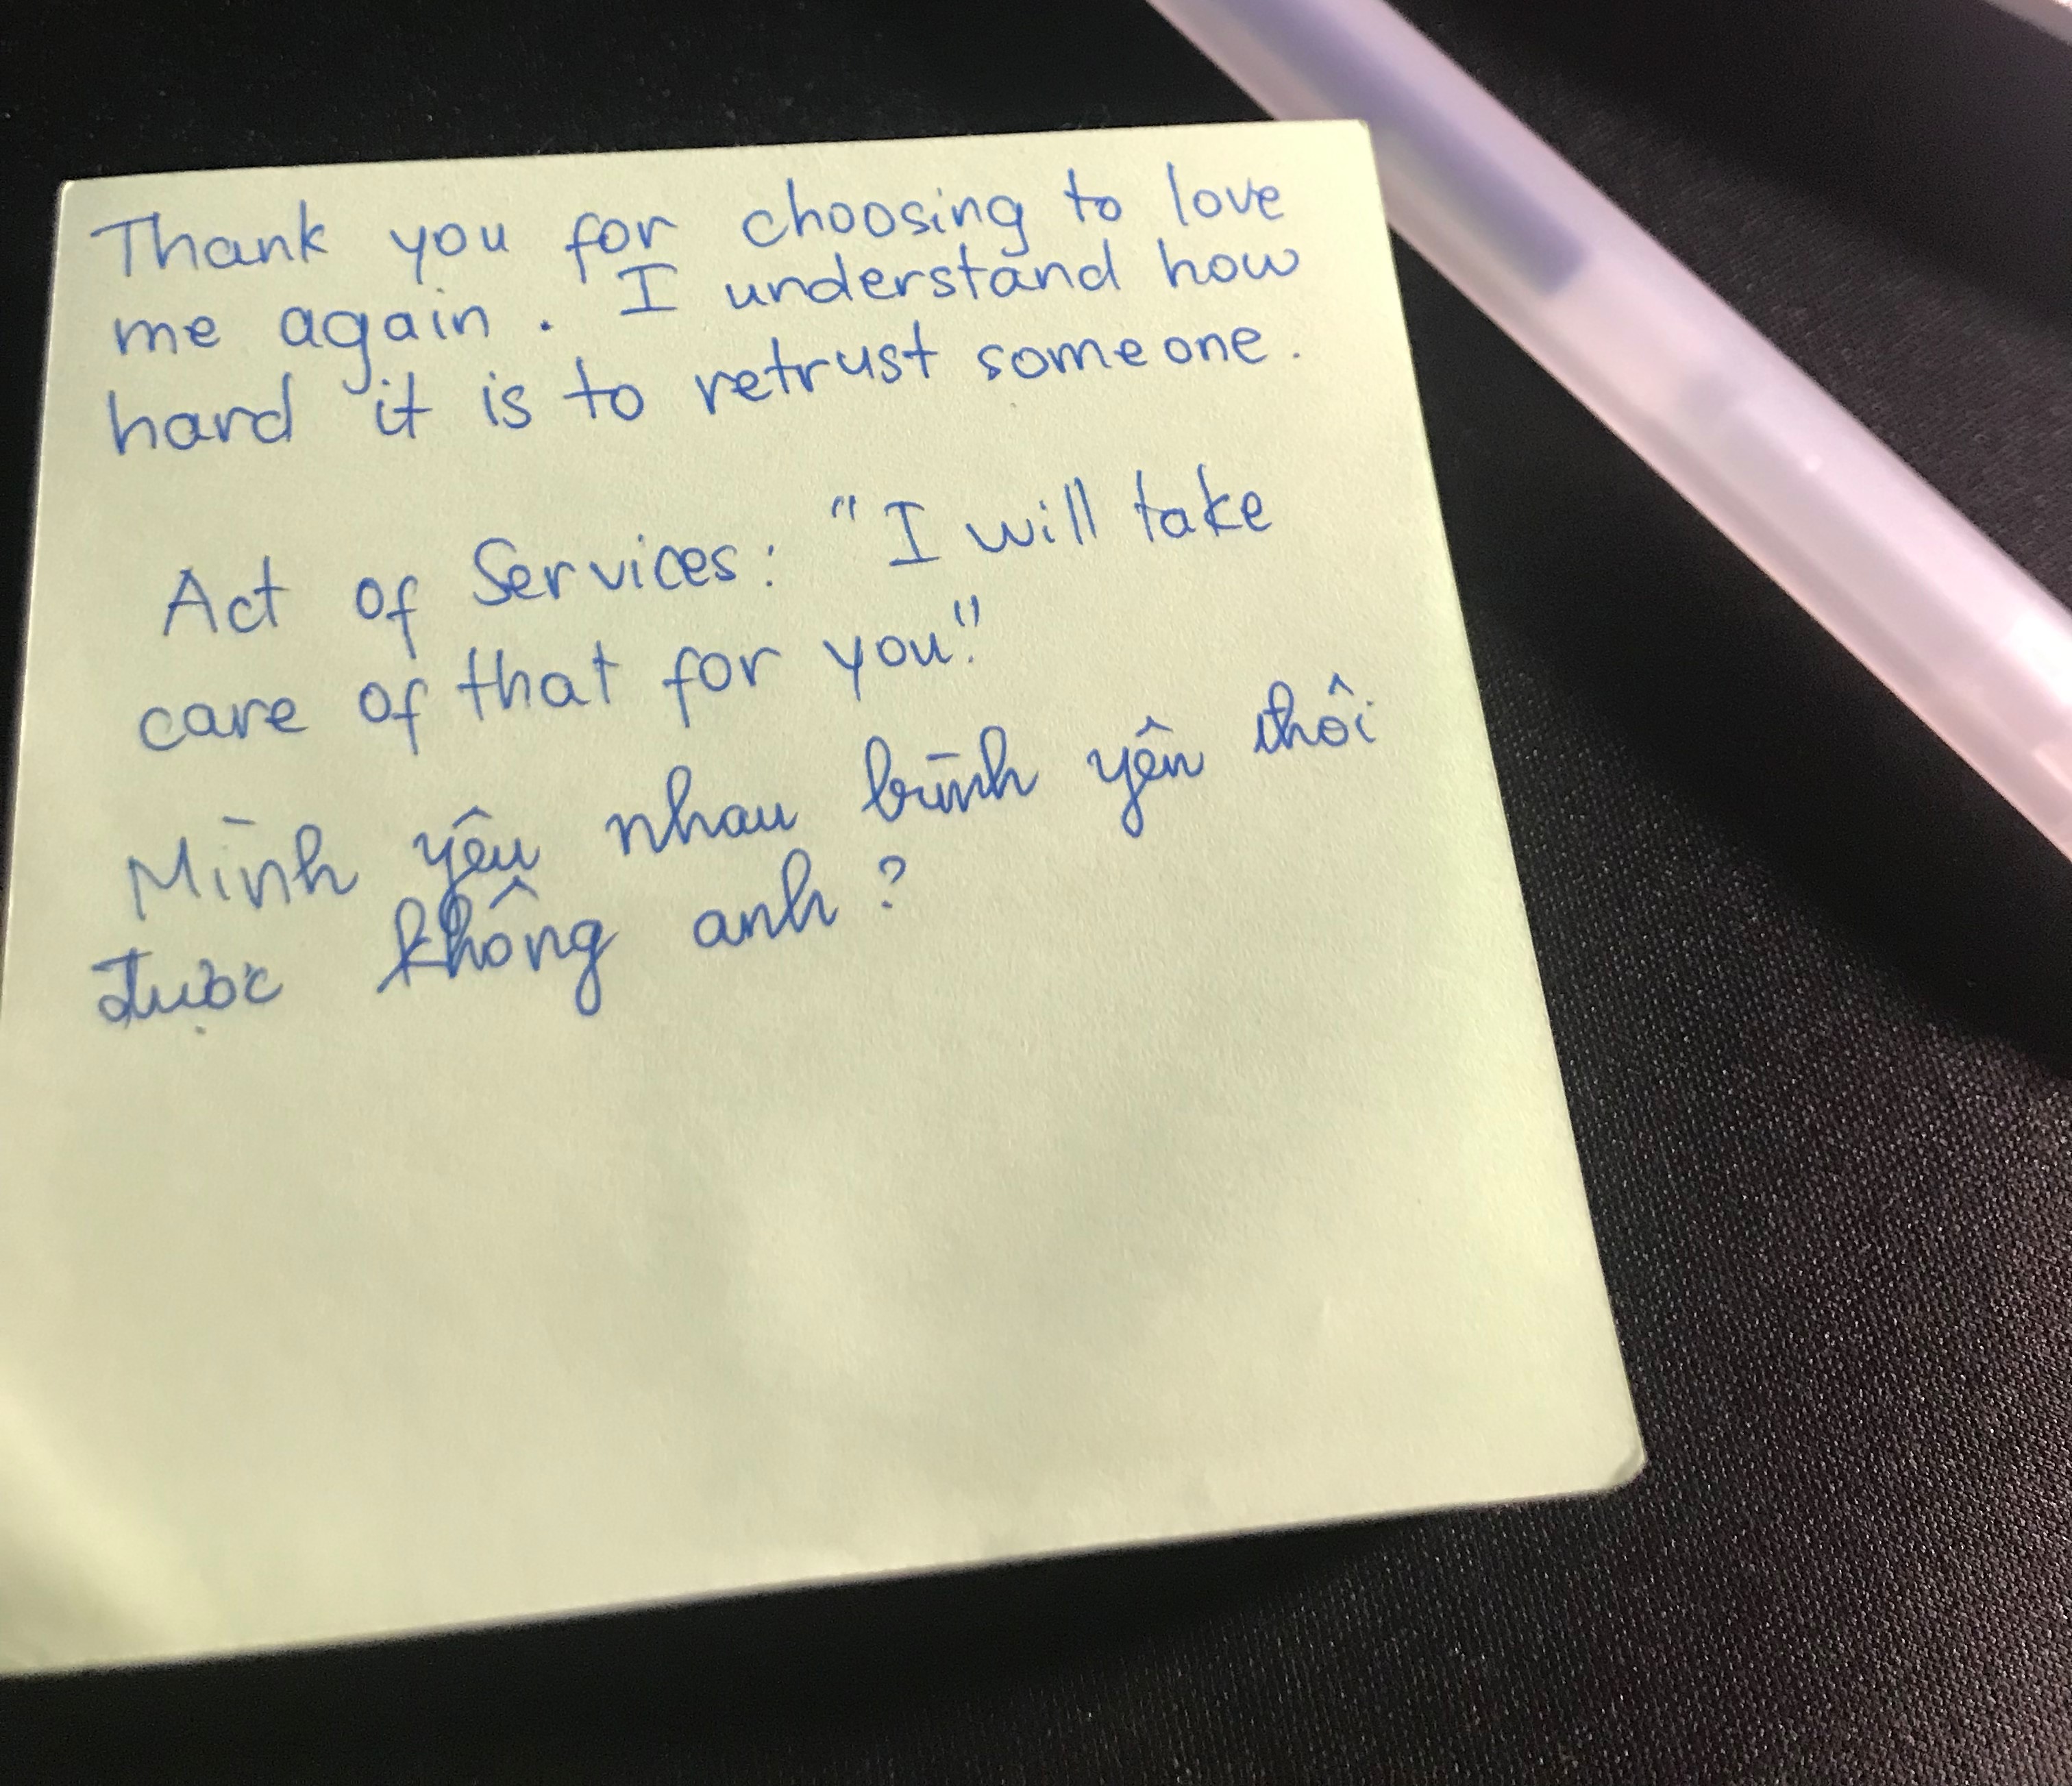 Thank you for choosing to love
me again. I understand how
hard it is to retrust someone.
Act of Services: "I will take
care of that for you."
Mình yêu nhau bình yên thôi
được không anh?